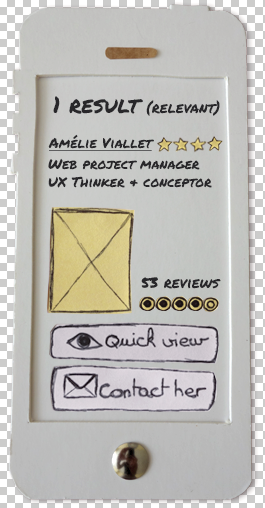 1 RESULT (RELEVANT)
AMÉLIE VIALLET
WEB PROJECT MANAGER
UX THINKER + CONCEPTOR
53 REVIEWS
Quick view
Contact her